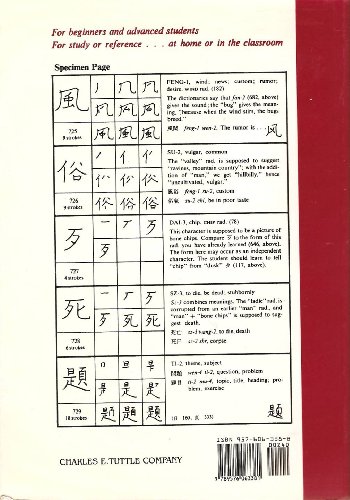 For beginners and advanced students
For study or reference . . . at home or in the classroom
Specimen Page
風
725
9 strokes
FENG-1, wind; news; custom; rumor;
desire. WIND rad. (182)
The dictionaries say that fan-2 (682, above)
gives the sound; the "bug" gives the mean-
ing, "because when the wind stirs, the bugs
breed."
風聞 feng-1 wen-2. The rumor is . . .
风
俗
726
9 strokes
SU-2, vulgar, common
The "valley" rad. is supposed to suggest
"ravines, mountain country"; with the addi-
tion of "man," we get "hillbilly," hence
"uncultivated, vulgar."
風俗 feng-1 su-2, custom
俗氣
歹
727
4 strokes
DAI-3, chip. CHIP rad. (78)
This character is supposed to be a picture of
bone chips. Compare 歹 to the form of this
rad. you have already learned (646, above).
The form here may occur as an independent
character. The student should learn to tell
"chip" from "dusk" 夕 (117, above).
死
728
6 strokes
SZ-3, to die, be dead; stubbornly
Sz-3 combines meanings. The "ladle" rad. is
corrupted from an earlier "man" rad., and
"man" + "bone chips" is supposed to sug-
gest death.
死亡 sz-3 wang-2, to die, death
題
729
18 strokes
TI-2, theme, subject
問題 wen-4 ti-2, question, problem
題目 ti-2 mu-4, topic, title, heading, pro-
blem, exercise
題
ISBN 957-606-355-8
00240
9 789576 063558
CHARLES E. TUTTLE COMPANY